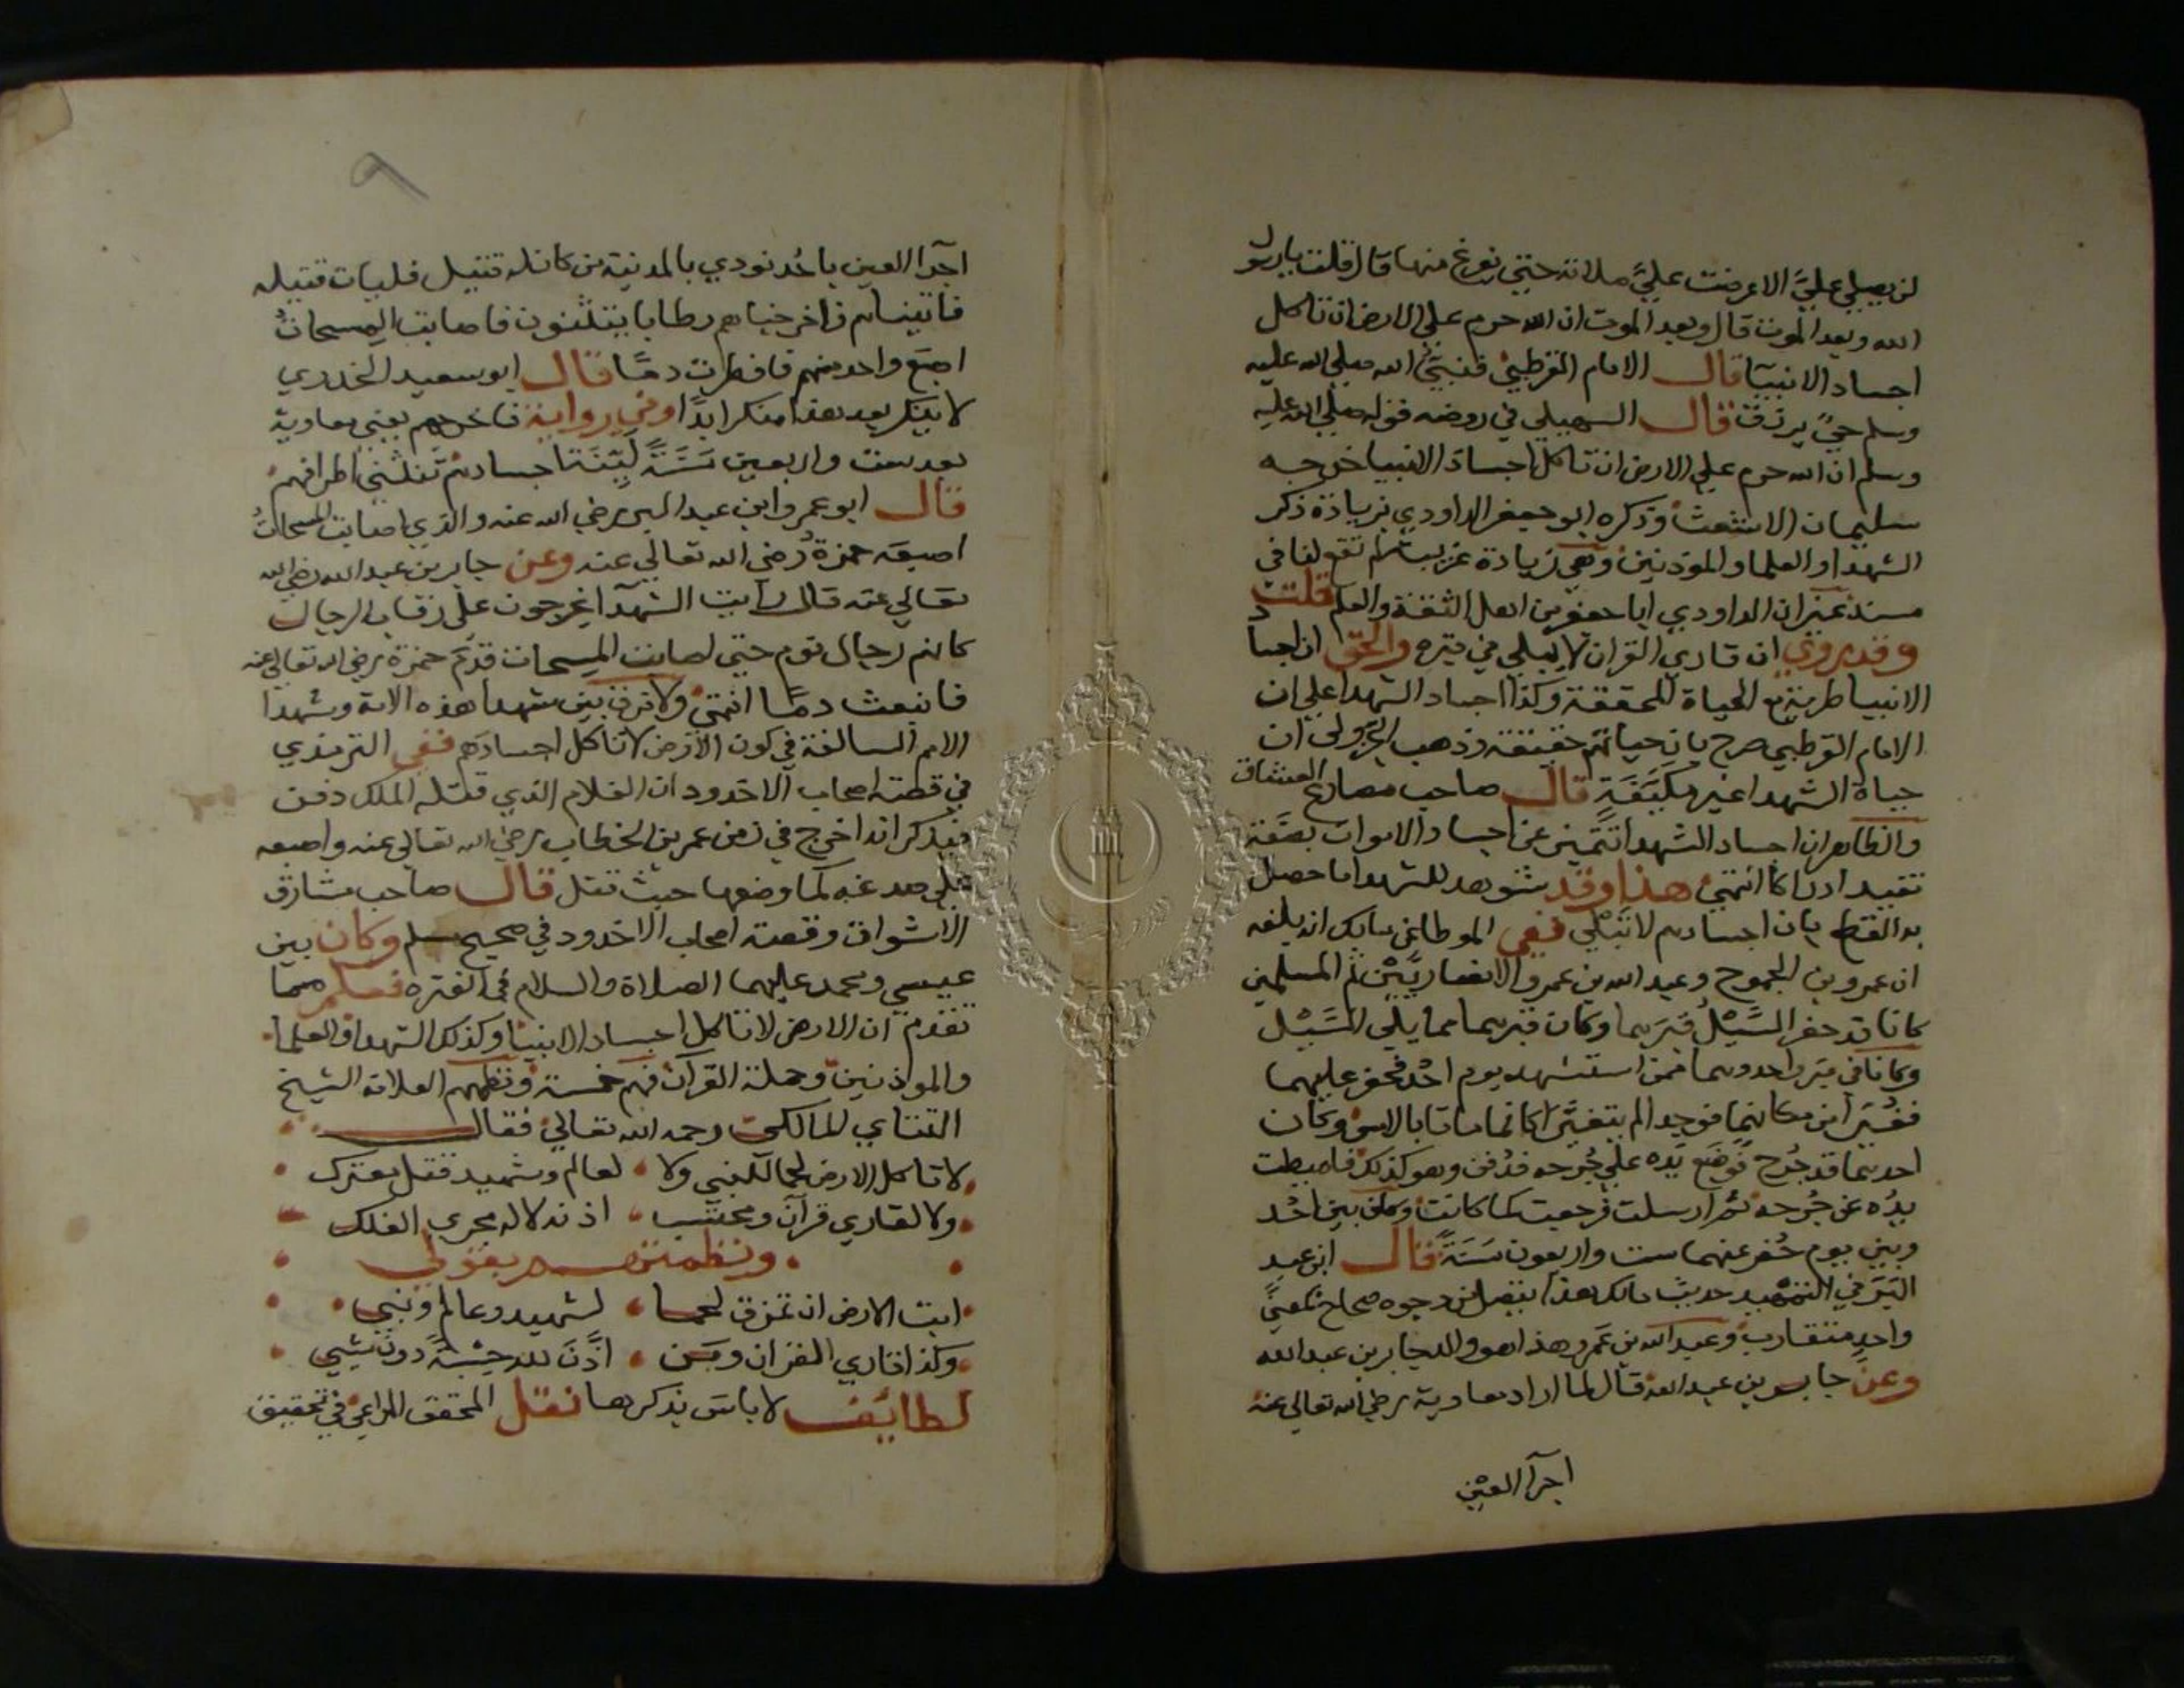 لن يصلي عليَّ الا عرضت عليَّ صلاته حتي يفرغ منها قال قلت يا رسول
الله وبعد الموت قال وبعد الموت ان الله حرم علي الارض ان تاكل
اجساد الانبيآ قال الامام القرطبي فنبيُّ الله صلي الله عليه
وسلم حيٌ يرزق قال السهيلي في روضه قوله صلي الله عليه
وسلم ان الله حرم علي الارض ان تاكل اجساد الانبيا خرجه
سليمان الاشعث وذكره ابو جعفر الداودي بزيادة ذكر
الشهدا والعلما والموذنين وهي زيادة غريبة لم تقع لنا في
مسند غير ان الداودي ابا جعفر من اهل الثقة والعلم قلت
وقد روي ان قاري القران لا يبلي في قبره والحق ان اجساد
الانبيا طرية مع الحياة المحققة وكذا اجساد الشهدا علي ان
الامام القرطبي صرح بان حياتهم حقيقة وذهب الجزولي ان
حياة الشهدا غير مكيَّفَةٍ قال صاحب مصارع العشاق
والظاهر ان اجساد الشهدا تتميز عن اجساد الاموات بصفة
تفيد ادراكا انتهي هذا وقد شوهد للشهدا ما حصل
به القطع بان اجسادهم لا تَبْلَي ففي الموطا عن مالك انه بلغه
ان عمرو بن الجموح وعبد الله بن عمرو الانصاريَّيْن ثم المسلمين
كانا قد حفر السَّيْلُ قبرَيهما وكان قبرهما مما يلي السَّيْل
وكانا في قبر واحد وهما ممن استشهد يوم احُد فحفر عليهما
ليُغيَّرا من مكانهما فوجدا لم يتغيَّرا كانما ماتا بالامس وكان
احدهما قد جُرح فوَضَع يَده علي جُرحه فدُفن وهو كذلك فاميطت
يدُه عن جُرحه ثم ارسلت فرجعت كما كانت وكان بين احُد
وبين يوم حُفر عنهما ست واربعون سَنَةً قال ابن عبد
البَرّ في التمهيد حديث مالك هذا يتصل من وجوه صحاح بمعنيً
واحد متقارب وعبد الله بن عَمرو هذا هو والد جابر بن عبد الله
وعن جابر بن عبد الله قال لما اراد معاوية رضي الله تعالي عنه
اجرآ العَيْن
٩
اجرآ العين باحُد نودي بالمدينة من كان له قتيل فليات قتيله
فاتيناهم فاخرجناهم رطابا يتثنون فاصابت المسحاتُ
اصبَع واحد منهم فانفطرت دمًا قال ابو سعيد الخدري
لا ينكر بعد هذا منكر ابدًا وفي رواية فاخرجهم يعني معاوية
بعد ست واربعين سَنَةً لَيِّنَةً اجسادهم تَتَثني اطرافهم
قال ابو عمرو ابن عبد البر رضي الله عنه والذي اصابت المسحاتُ
اصبعَه حمزة رضي الله تعالي عنه وعن جابر بن عبد الله رضي الله
تعالي عنه قال رايت الشهدآ يخرجون علي رقاب الرجال
كانهم رجال نوم حتي اصابت المسحات قدَم حمزة رضي الله تعالي عنه
فانبعث دمًا انتهي ولا فرق بين شهدا هذه الامة وشهدا
الامم السالفة في كون الارض لا تاكل اجسادهم ففي الترمذي
في قصة اصحاب الاخدود ان الغلام الذي قتله الملك دفن
فيذكر انه اخرج في زمن عمر بن الخطاب رضي الله تعالي عنه واصبعه
علي صدغه كما وضعها حيث قتل قال صاحب مشارق
الاشواق وقصة اصحاب الاخدود في صحيح مسلم وكان بين
عيسي ومحمد عليهما الصلاة والسلام في الفتره فعلم مما
تقدم ان الارض لا تاكل اجساد الانبيآ وكذلك الشهدا والعلما
والموذنين وحملة القرآن فهم خمسة ونظمهم العلامة الشيخ
التتاي المالكي رحمه الله تعالي فقال
لا تاكل الارض لحما للنبي ولا لعالم وشهيد قتل معترك
ولا لقاري قرآن ومحتسب اذانه لاله مجري الفلك
ونظمتهم بقولي
ابت الارض ان تمزق لحما لشهيد وعالم ونبي
وكذا قاري القران ومَن اذَّنَ لله حِسْبةً دون شيي
لطائف لا باس بذكرها نقل المحقق المراغي في تحقيق